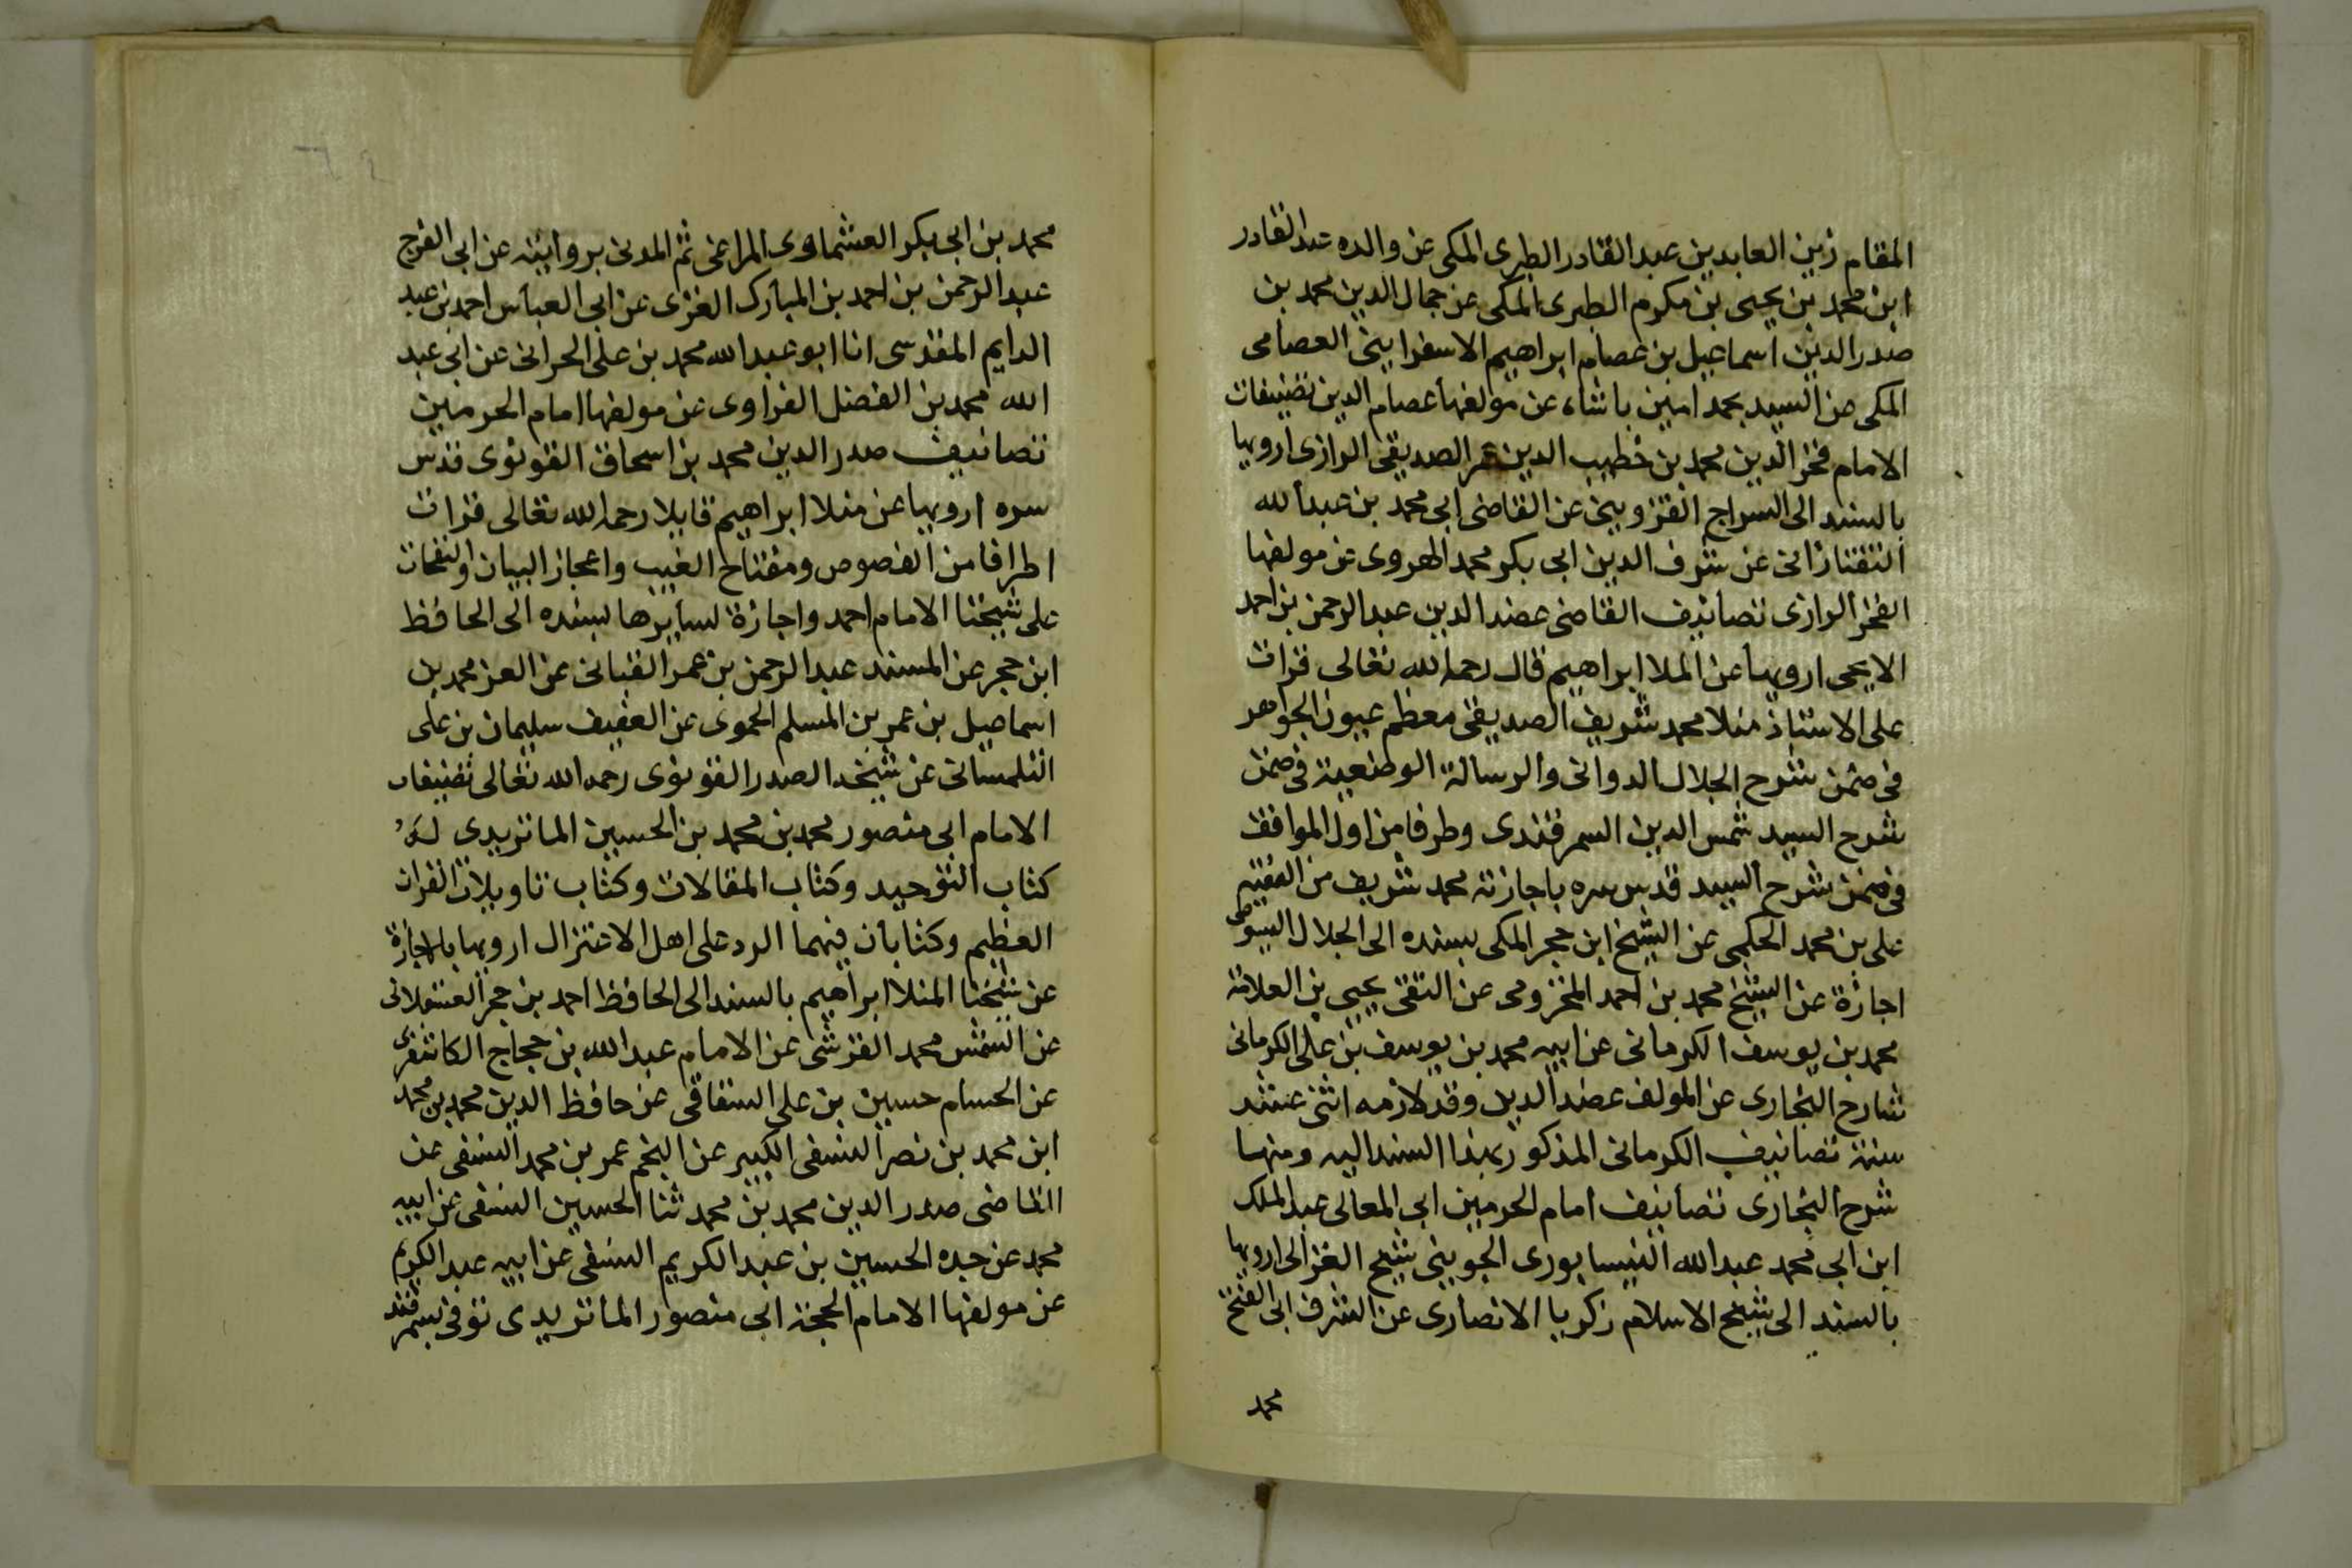 المقام زين العابدين عبد القادر الطبرى المكى عن والده عبد القادر
ابن محمد بن يحيى بن مكرم الطبرى المكى عن جمال الدين محمد بن
صدر الدين اسماعيل بن عصام ابراهيم الاسفراينى العصامى
المكى عن السيد محمد امين باشاه عن مولفها عصام الدين تصنيفات
الامام فخر الدين محمد بن خطيب الدين عمر الصديقى الرازى ارويها
بالسند الى السراج القزوينى عن القاضى ابى محمد بن عبد الله
التفتازانى عن شرف الدين ابى بكر محمد الهروى عن مولفها
الفخر الرازى تصانيف القاضى عضد الدين عبد الرحمن بن احمد
الايجى ارويها عن الملا ابراهيم قال رحمه الله تعالى قرات
على الاستاذ منلا محمد شريف الصديقى معظم عيون الجواهر
فى ضمن شرح الجلال الدوانى والرسالة الوضعية فى ضمن
شرح السيد شمس الدين السمرقندى وطرفا من اول المواقف
فى ضمن شرح السيد قدس سره باجازته محمد شريف من الفقيه
على بن محمد الحكمى عن الشيخ ابن حجر المكى بسنده الى الجلال السيوطى
اجازة عن الشيخ محمد بن احمد المخزومى عن التقى يحيى بن العلامة
محمد بن يوسف الكرمانى عن ابيه محمد بن يوسف بن على الكرمانى
شارح البخارى عن المولف عضد الدين وقد لازمه اثنى عشر
سنة تصانيف الكرمانى المذكور بهذا السند اليه ومنها
شرح البخارى تصانيف امام الحرمين ابى المعالى عبد الملك
ابن ابى محمد عبد الله النيسابورى الجوينى شيخ الغزالى ارويها
بالسند الى شيخ الاسلام زكريا الانصارى عن الشرف ابى الفتح
محمد
محمد بن ابى بكر العشماوى المراغى ثم المدنى بروايته عن ابى الفرج
عبد الرحمن بن احمد بن المبارك الغزى عن ابى العباس احمد بن عبد
الدايم المقدسى انا ابو عبد الله محمد بن على الحرانى عن ابى عبد
الله محمد بن الفضل الفراوى عن مولفها امام الحرمين
تصانيف صدر الدين محمد بن اسحاق القونوى قدس
سره ارويها عن منلا ابراهيم قايلا رحمه الله تعالى قرات
اطرافا من الفصوص ومفتاح الغيب واعجاز البيان والنفحات
على شيخنا الامام احمد واجازة لسايرها بسنده الى الحافظ
ابن حجر عن المسند عبد الرحمن بن عمر القبانى عن العز محمد بن
اسماعيل بن عمر بن المسلم الحموى عن العفيف سليمان بن على
التلمسانى عن شيخه الصدر القونوى رحمه الله تعالى تصنيفات
الامام ابى منصور محمد بن محمد بن الحسين الماتريدى له
كتاب التوحيد وكتاب المقالات وكتاب تاويلات القران
العظيم وكتابان فيهما الرد على اهل الاعتزال ارويها بالاجازة
عن شيخنا المنلا ابراهيم بالسند الى الحافظ احمد بن حجر العسقلانى
عن الشمس محمد القرشى عن الامام عبد الله بن حجاج الكاشغرى
عن الحسام حسين بن على السنقاقى عن حافظ الدين محمد بن محمد
ابن محمد بن نصر النسفى الكبير عن النجم عمر بن محمد النسفى عن
القاضى صدر الدين محمد بن محمد ثنا الحسين النسفى عن ابيه
محمد عن جده الحسين بن عبد الكريم النسفى عن ابيه عبد الكريم
عن مولفها الامام الحجة ابى منصور الماتريدى توفى بسمرقند